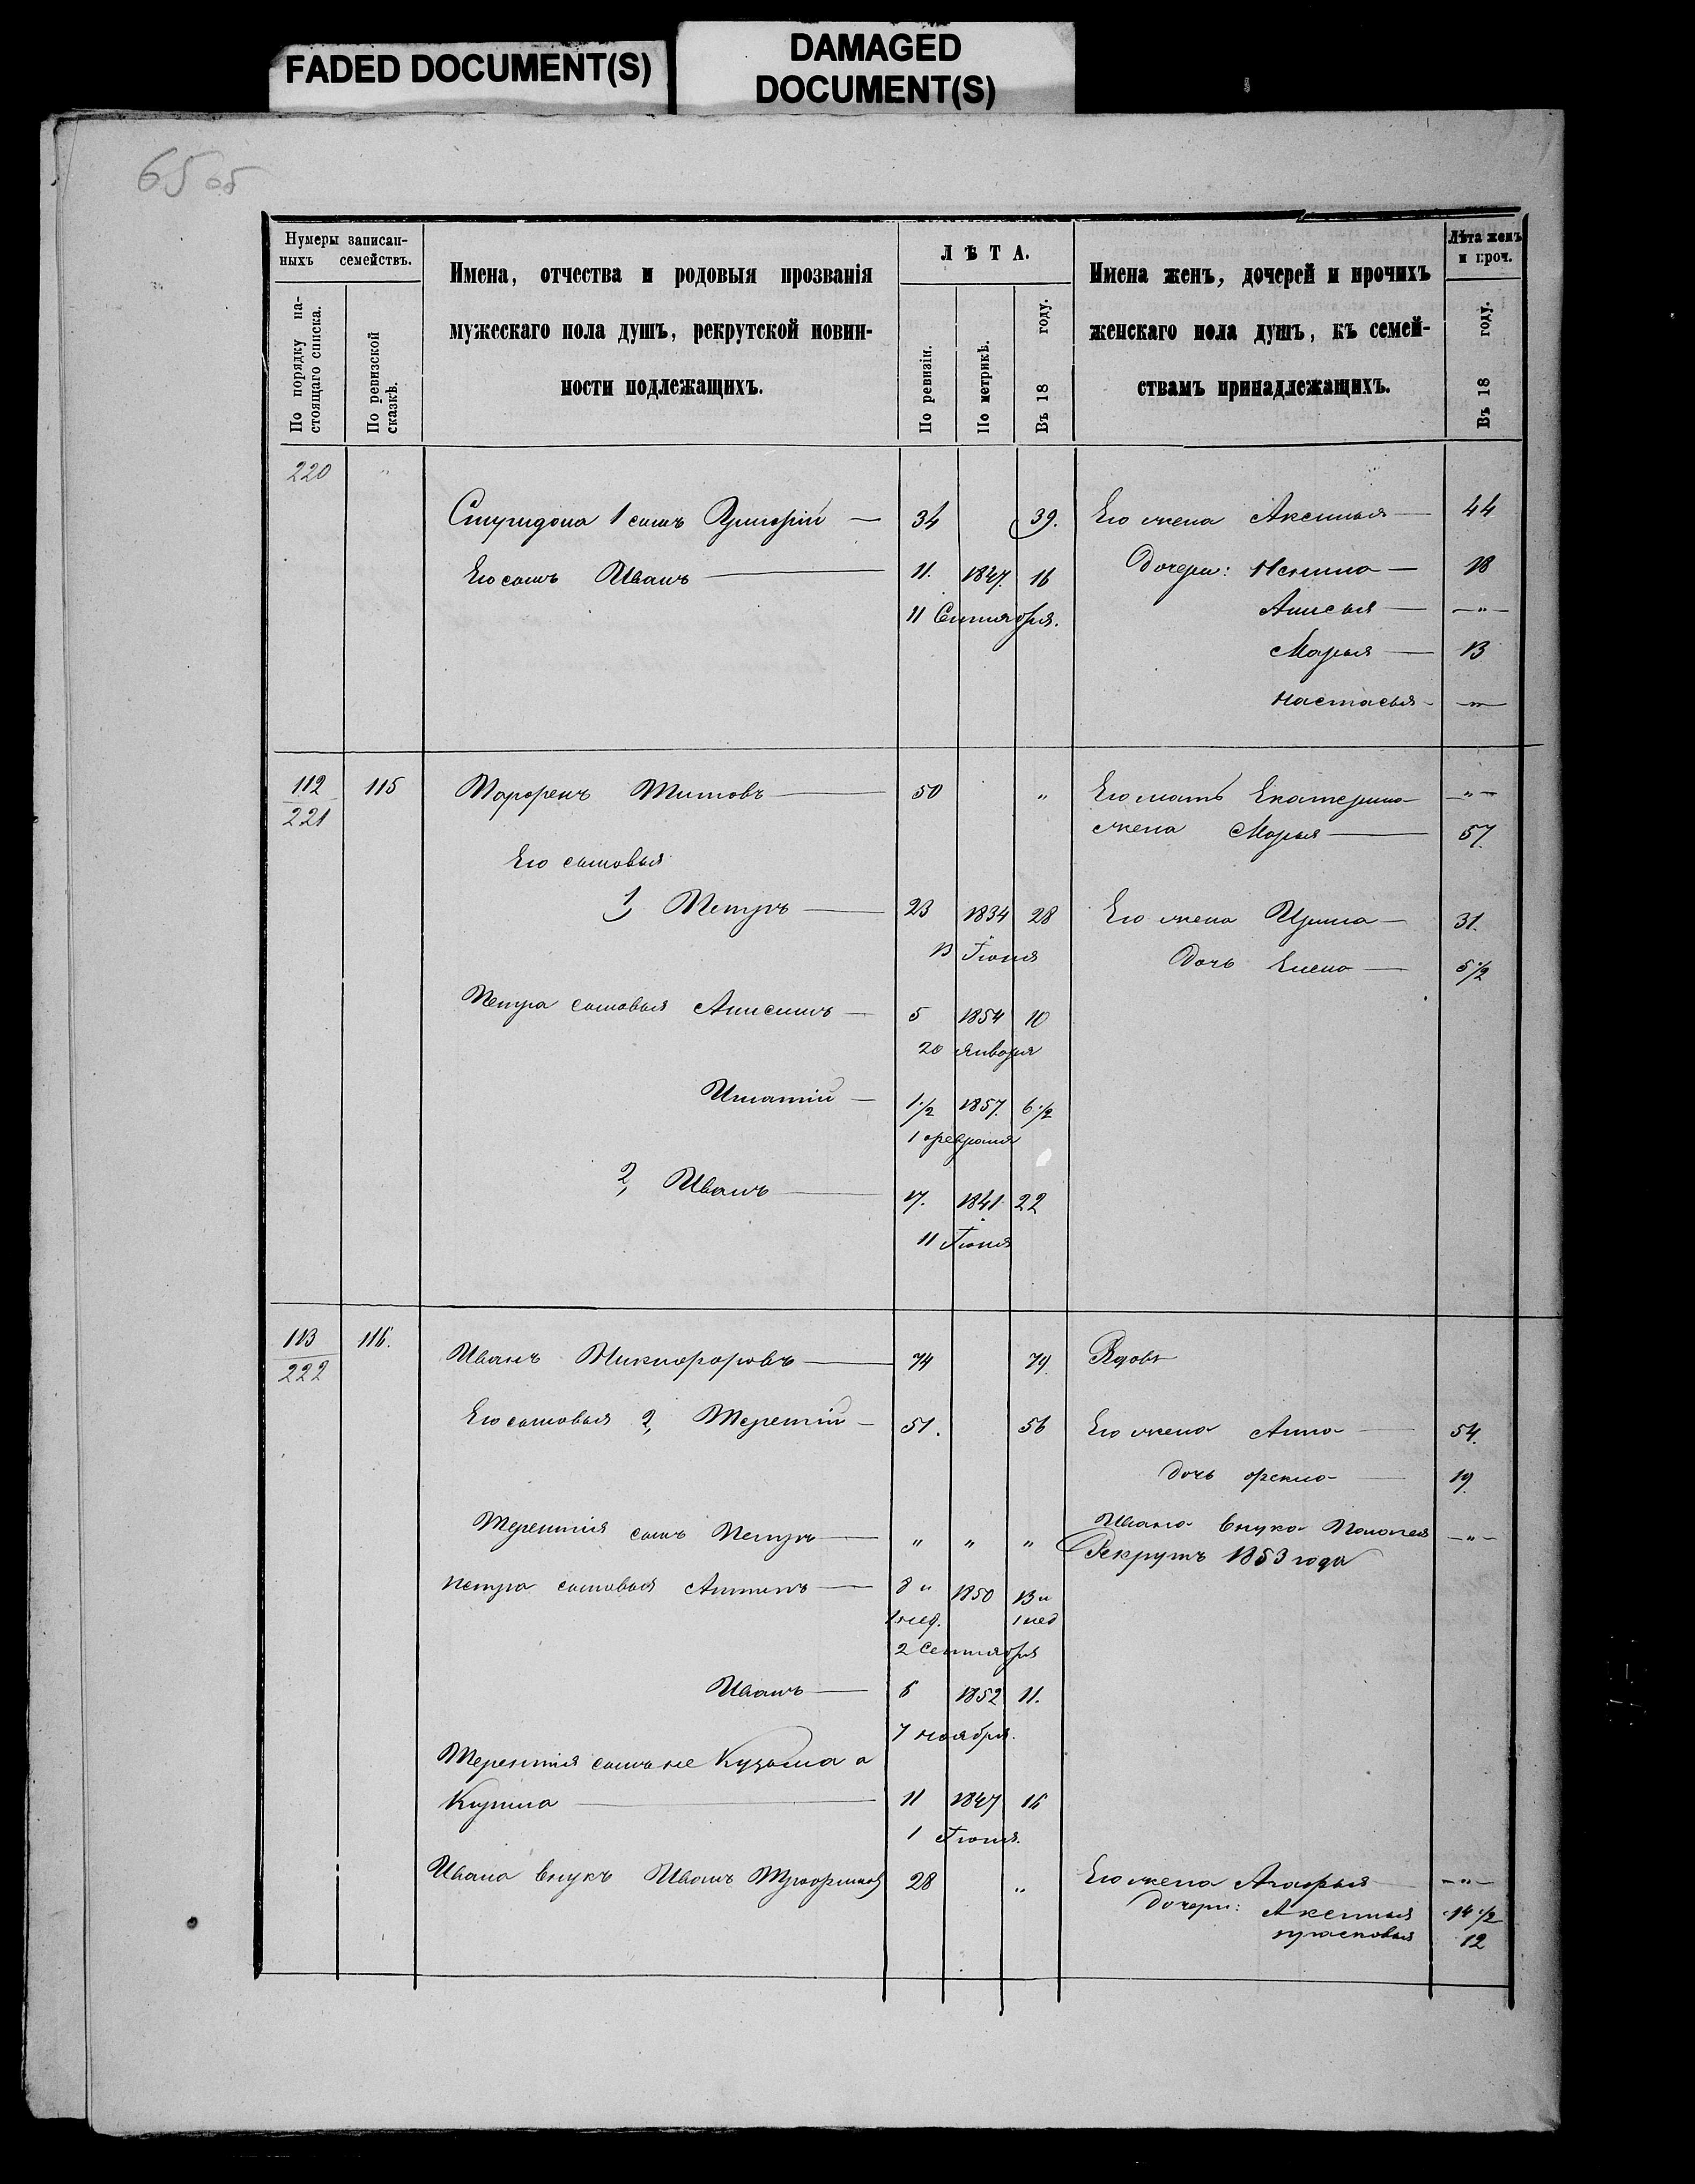 FADED DOCUMENT(S)
DAMAGED
DOCUMENT(S)
65 об
Нумеры записан-
ныхъ семействъ.
По порядку на-
стоящаго списка.
По ревизской
сказкѣ.
Имена, отчества и родовыя прозванія
мужескаго пола душъ, рекрутской повин-
ности подлежащихъ.
ЛѢТА.
По ревизіи.
По метрикѣ.
Въ 18 году.
Имена женъ, дочерей и прочихъ
женскаго пола душъ, къ семей-
ствамъ принадлежащихъ.
Лѣта женъ
и проч.
Въ 18 году.
220 "
Спиридона 1 сынъ Григорій — 34 39. Его жена Аксинья — 44
Его сынъ Иванъ — 11. 1847. 16 Дочери: — 18
11 Сентября. Анисья — "
Марья — 13
Настасья — "
112 115 Парфенъ Титовъ — 50 " Его мать Екатерина — "
221 жена Марья — 57.
Его сыновья
1, Петръ — 23 1834 28 Его жена Ирина — 31.
13 Іюня Дочь Елена — 5 1/2
Петра сыновья Анисимъ — 5 1854 10
20 Января
Игнатій — 1 1/2 1857. 6 1/2
1 февраля
2, Иванъ — 17. 1841 22
11 Іюня
113 116. Иванъ Никифоровъ — 74 79. Вдовъ
222
Его сыновья 2, Терентій — 51. 56 Его жена Анна — 54.
дочь Фекла — 19.
Ивана внука Пелагея — "
Терентія сынъ Петръ — " " " Рекрутъ 1853 года
Петра сыновья — 8 и 1850 13 и
1 нед. 1 нед
2 Сентября
Иванъ — 6 1852 11.
7 ноября.
Терентія сынъ не Кузьма а
Кирила — 11 1847 16
1 Іюня.
Ивана внукъ Иванъ 28 " Его жена Агафья — "
дочери: Аксинья 14 1/2
Прасковья 12